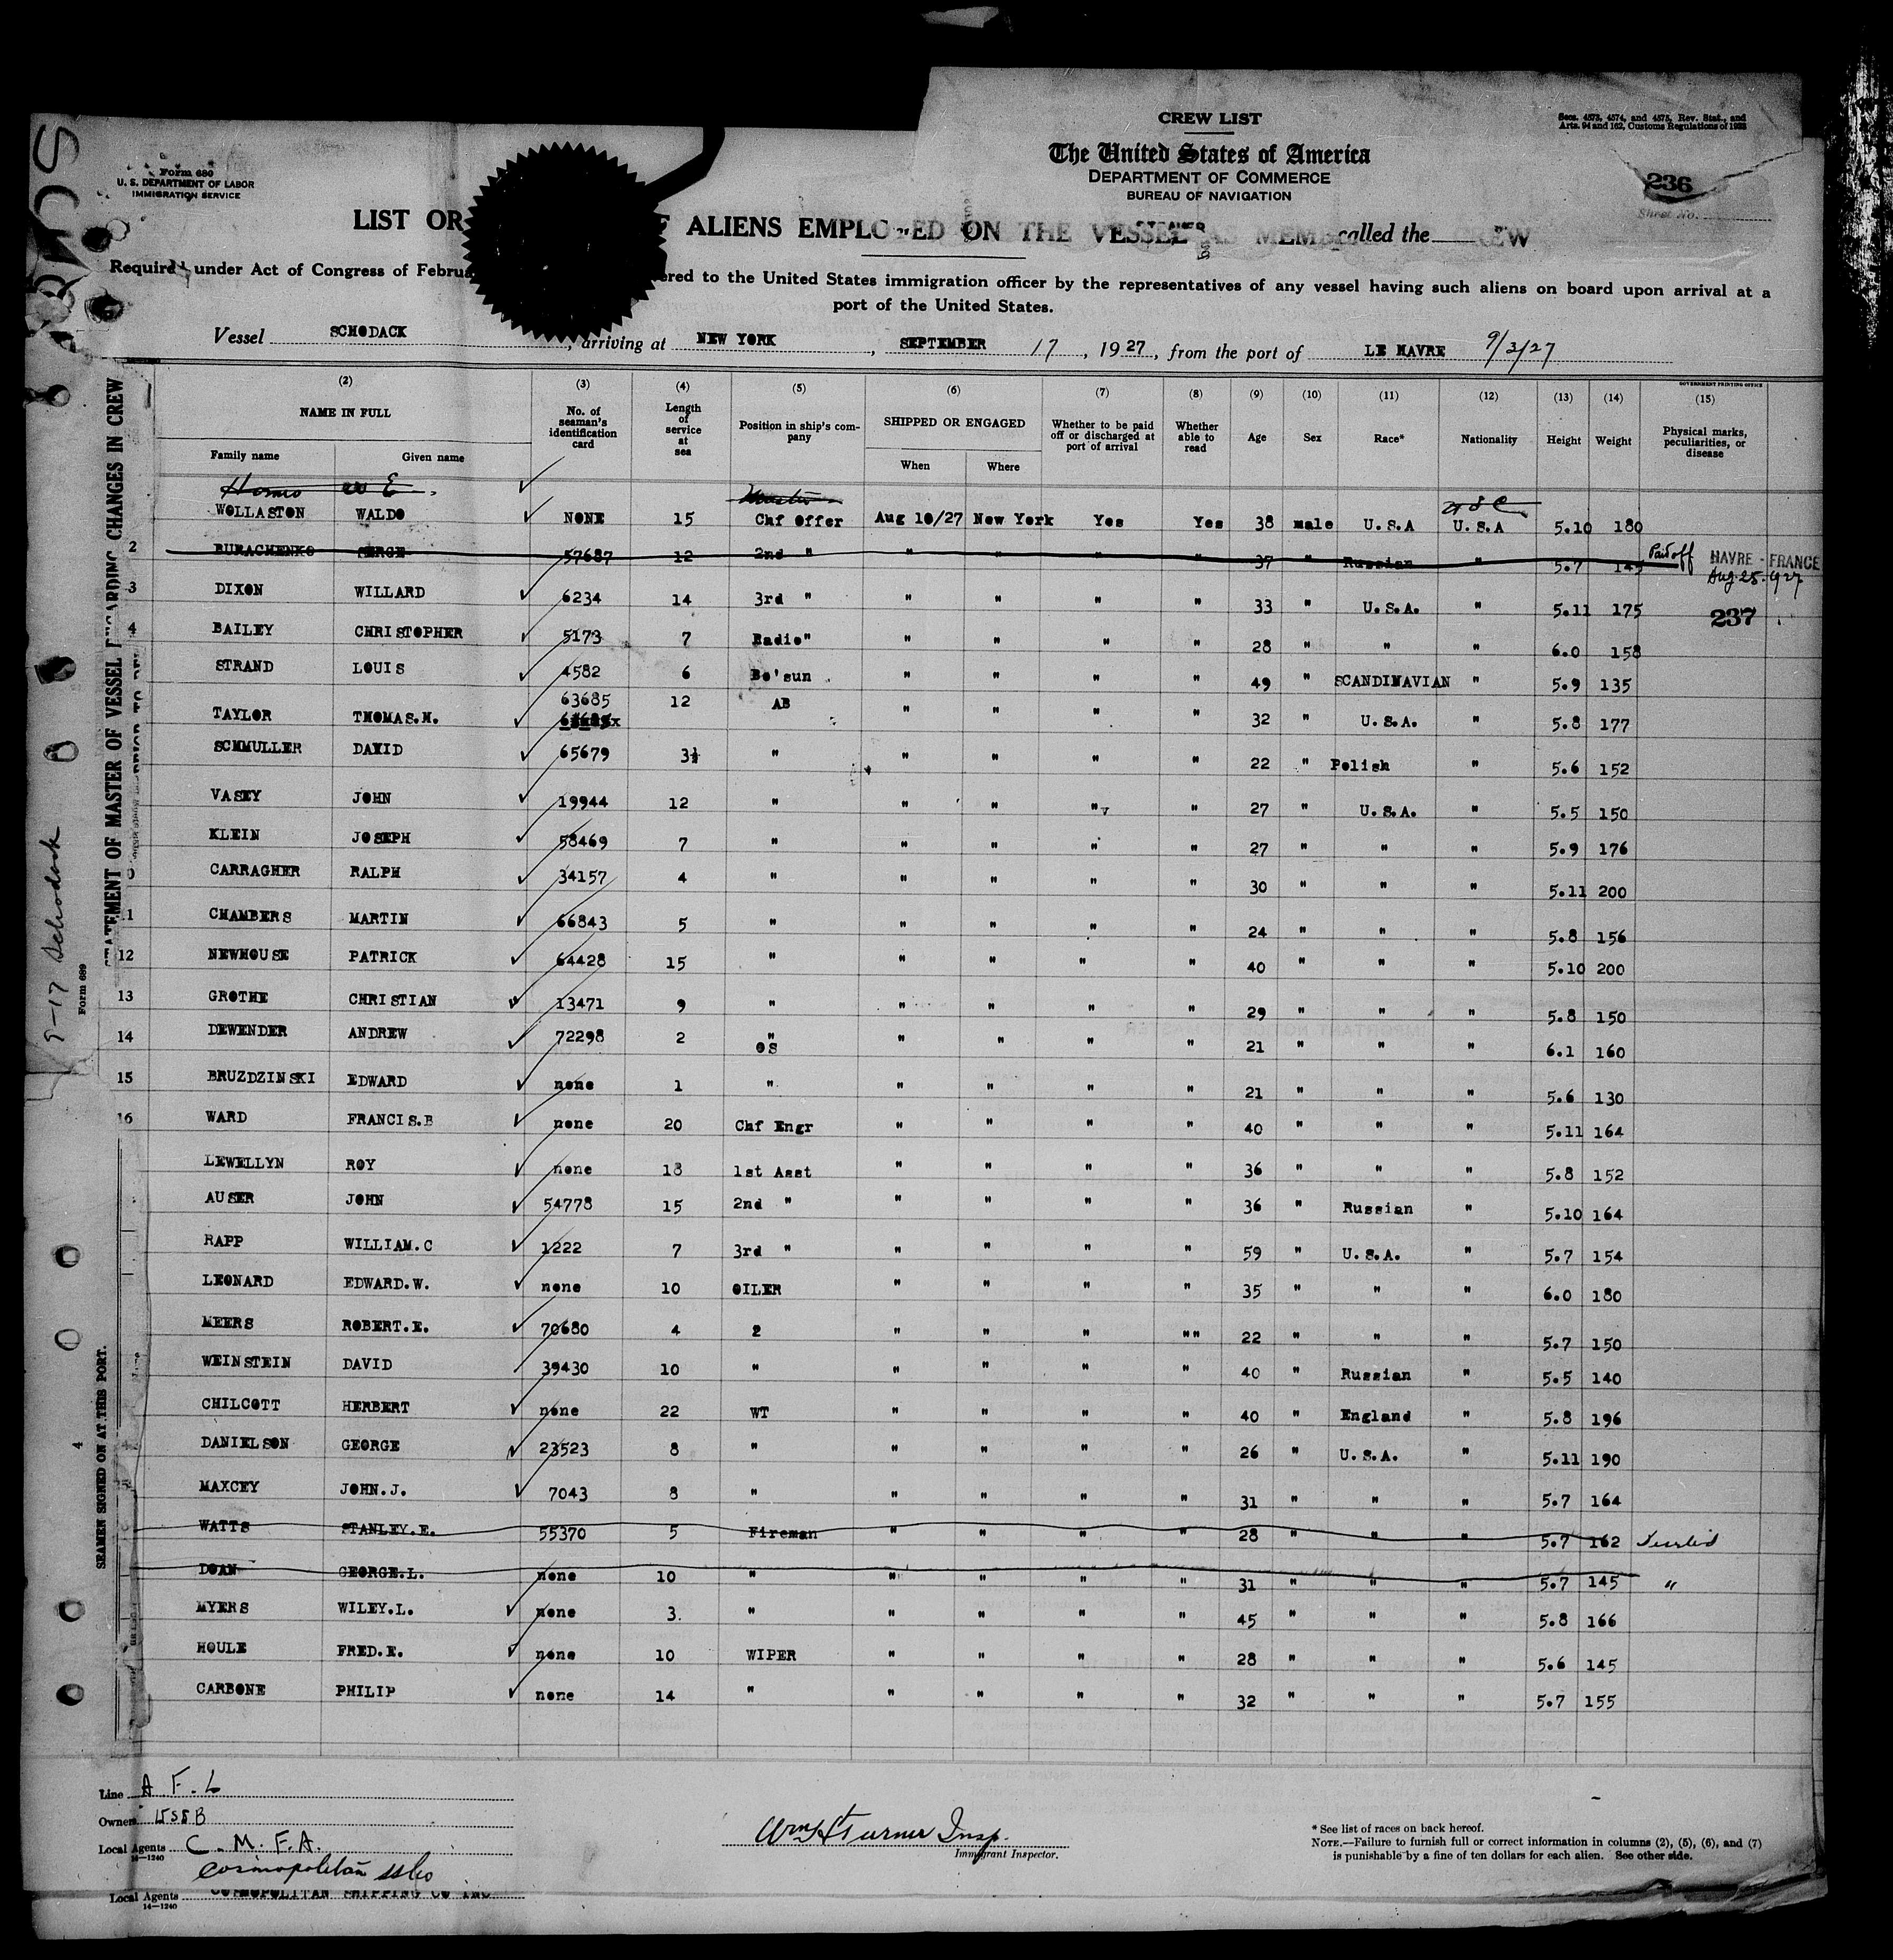 CREW LIST
Secs. 4573, 4574, and 4575, Rev. Stat., and
Arts. 94 and 162, Customs Regulations of 1923
The United States of America
DEPARTMENT OF COMMERCE
BUREAU OF NAVIGATION
236
Sheet No.
Form 680
U. S. DEPARTMENT OF LABOR
IMMIGRATION SERVICE
LIST OR ALIENS EMPLOYED ON THE VESSEL AS MEMB called the CREW
Required under Act of Congress of Februa ered to the United States immigration officer by the representatives of any vessel having such aliens on board upon arrival at a
port of the United States.
Vessel SCHODACK, arriving at NEW YORK, SEPTEMBER 17, 1927, from the port of LE HAVRE 9/3/27
GOVERNMENT PRINTING OFFICE
(2) (3) (4) (5) (6) (7) (8) (9) (10) (11) (12) (13) (14) (15)
NAME IN FULL
Family name Given name
No. of seaman's identification card
Length of service at sea
Position in ship's company
SHIPPED OR ENGAGED
When Where
Whether to be paid off or discharged at port of arrival
Whether able to read
Age Sex Race* Nationality Height Weight
Physical marks, peculiarities, or disease
WOLLASTON WALDO NONE 15 Chf Offer Aug 10/27 New York Yes Yes 38 male U.S.A U.S.A 5.10 180
2 BURACHENKO SERGE 57687 12 2nd " " " " " 37 " Russian 5.7 145 Paid off HAVRE - FRANCE
Aug 25. 1927
3 DIXON WILLARD 6234 14 3rd " " " " " 33 " U.S.A. " 5.11 175 237
4 BAILEY CHRISTOPHER 5173 7 Radio" " " " " 28 " " " 6.0 158
STRAND LOUIS 4582 6 Bo'sun " " " " 49 " SCANDINAVIAN " 5.9 135
TAYLOR THOMAS.H. 63685 12 AB " " " " 32 " U.S.A. " 5.8 177
SCHMULLER DAVID 65679 3½ " " " " " 22 " Polish " 5.6 152
VASEY JOHN 19944 12 " " " " " 27 " U.S.A. " 5.5 150
KLEIN JOSEPH 58469 7 " " " " " 27 " " " 5.9 176
CARRAGHER RALPH 34157 4 " " " " " 30 " " " 5.11 200
11 CHAMBERS MARTIN 66843 5 " " " " " 24 " " " 5.8 156
12 NEWHOUSE PATRICK 64428 15 " " " " " 40 " " " 5.10 200
13 GROTHE CHRISTIAN 13471 9 " " " " " 29 " " " 5.8 150
14 DEWENDER ANDREW 72298 2 " OS " " " " 21 " " " 6.1 160
15 BRUZDZINSKI EDWARD none 1 " " " " " 21 " " " 5.6 130
16 WARD FRANCIS.B none 20 Chf Engr " " " " 40 " " " 5.11 164
LEWELLYN ROY none 18 1st Asst " " " " 36 " " " 5.8 152
AUSER JOHN 54778 15 2nd " " " " " 36 " Russian " 5.10 164
RAPP WILLIAM.C 1222 7 3rd " " " " " 59 " U.S.A. " 5.7 154
LEONARD EDWARD.W. none 10 OILER " " " " 35 " " " 6.0 180
MEERS ROBERT.E. 70680 4 2 " " " "" 22 " " " 5.7 150
WEINSTEIN DAVID 39430 10 " " " " " 40 " Russian " 5.5 140
CHILCOTT HERBERT none 22 WT " " " " 40 " England " 5.8 196
DANIELSON GEORGE 23523 8 " " " " " 26 " U.S.A. " 5.11 190
MAXCEY JOHN.J. 7043 8 " " " " " 31 " " " 5.7 164
WATTS STANLEY.E. 55370 5 Fireman " " " " 28 " " " 5.7 162
DOAN GEORGE.L. none 10 " " " " " 31 " " " 5.7 145 "
MYERS WILEY.L. none 3. " " " " " 45 " " " 5.8 166
HOULE FRED.E. none 10 WIPER " " " " 28 " " " 5.6 145
CARBONE PHILIP none 14 " " " " " 32 " " " 5.7 155
Line A. F. L
Owners USSB
Local Agents C. M. F. A.
14—1240
Cosmopolitan SS Co
Local Agents COSMOPOLITAN SHIPPING CO INC
14—1240
Wm H Turner Insp.
Immigrant Inspector.
* See list of races on back hereof.
NOTE.—Failure to furnish full or correct information in columns (2), (5), (6), and (7)
is punishable by a fine of ten dollars for each alien. See other side.
STATEMENT OF MASTER OF VESSEL REGARDING CHANGES IN CREW
9-17 Schodack
Form 689
SEAMEN SIGNED ON AT THIS PORT.
4